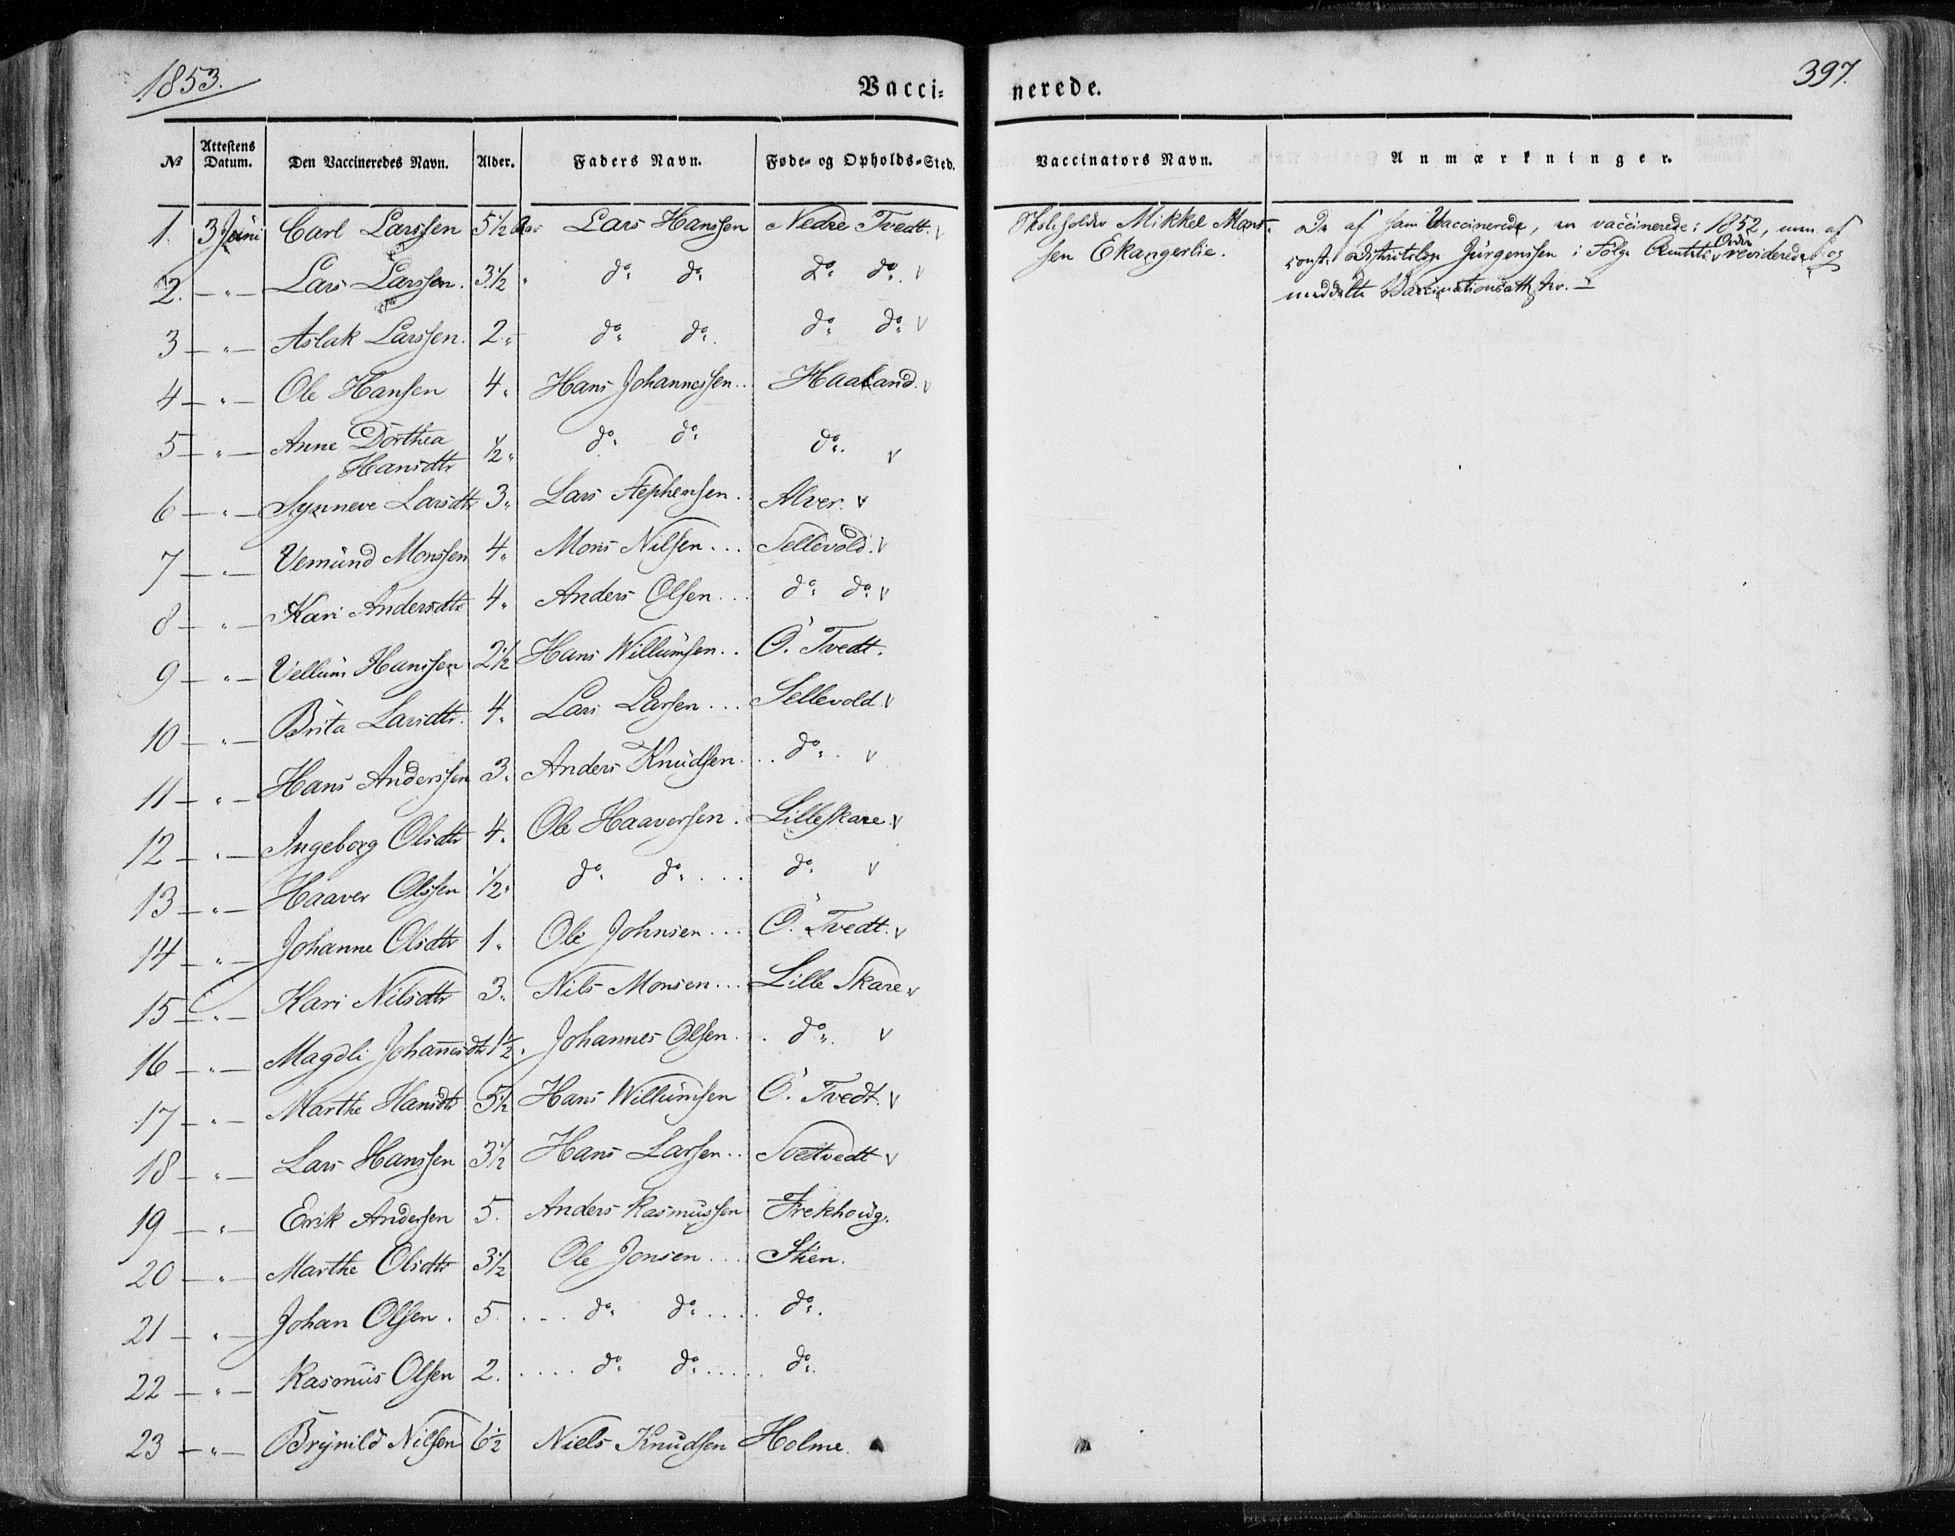 1853.
397.
Vacci- nerede.
№ Attestens Datum. Den Vaccineredes Navn. Alder. Faders Navn. Føde- og Opholds-Sted. Vaccinators Navn. Anmærkninger.
1. 3 Juni Carl Larssen 5 1/2 Lars Hanssen Nedre Tvedt. v Skoleholder Mikkel Mons- De af ham Vaccinerede, vaccinerede i 1852, af
sen Ekangerlie. const. Jürgenssen i Følge Amtets Orden reviderede og
2. — " — Lars Larssen. 3 1/2 " do. do. do. do. v meddelte
3 — " — Aslak Larssen. 2 " do. do. do. do. v
4 — " — Ole Hansen 4 " Hans Johannessen.. Haaland. v
5 — " — Anne Dorthea
Hansdtr 1/2 " do. do. do. v
6 — " — Synneve Larsdtr 3 " Lars Stephensen. Alver. v
7 — " — Vemund Monssen 4 " Mons Nilsen... Sellevold. v
8 — " — Kari Andersdtr 4 " Anders Olsen... do. do. v
9 — " — Vellum Hanssen 2 1/2 Hans Willumsen.. Ö. Tvedt.
10 — " — Brita Larsdtr. 4 " Lars Larsen... Sellevold. v
11 — " — Hans Anderssen 3 " Anders Knudsen... do. v
12 — " — Ingeborg Olsdtr 4 " Ole Haaversen. Lilleskare. v
13 — " — Haaver Olssen 1/2 " do. do.... do. v
14 — " — Johanne Olsdtr 1 " Ole Johnsen... Ö. Tvedt. v
15 — " — Kari Nilsdtr 3 " Nils Monsen... Lille Skare v
16 — " — Magdli Johannesdtr 1 1/2 " Johannes Olsen.. do. v
17 — " — Marthe Hansdtr 5 1/2 Hans Willumsen Ö. Tvedt. v
18 — " — Lars Hanssen 3 1/2 Hans Larsen.. Toeltvedt v
19 — " — Erik Andersen 5. Anders Rasmussen Frekhoug.
20 — " — Marthe Olsdtr 3 1/2 Ole Jonsen... Stien.
21 — " — Johan Olsen. 5.... do. do..... do.
22 — " — Rasmus Olsen 2..... do. do...... do.
23 — " — Brynild Nilsen 6 1/2 Niels Knudsen Holme.